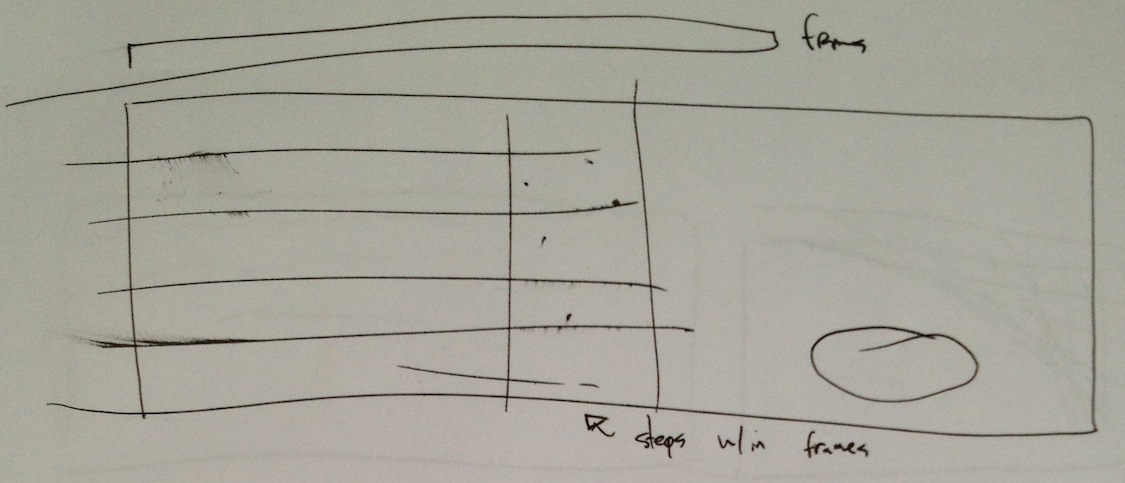 frames
steps w/in frames